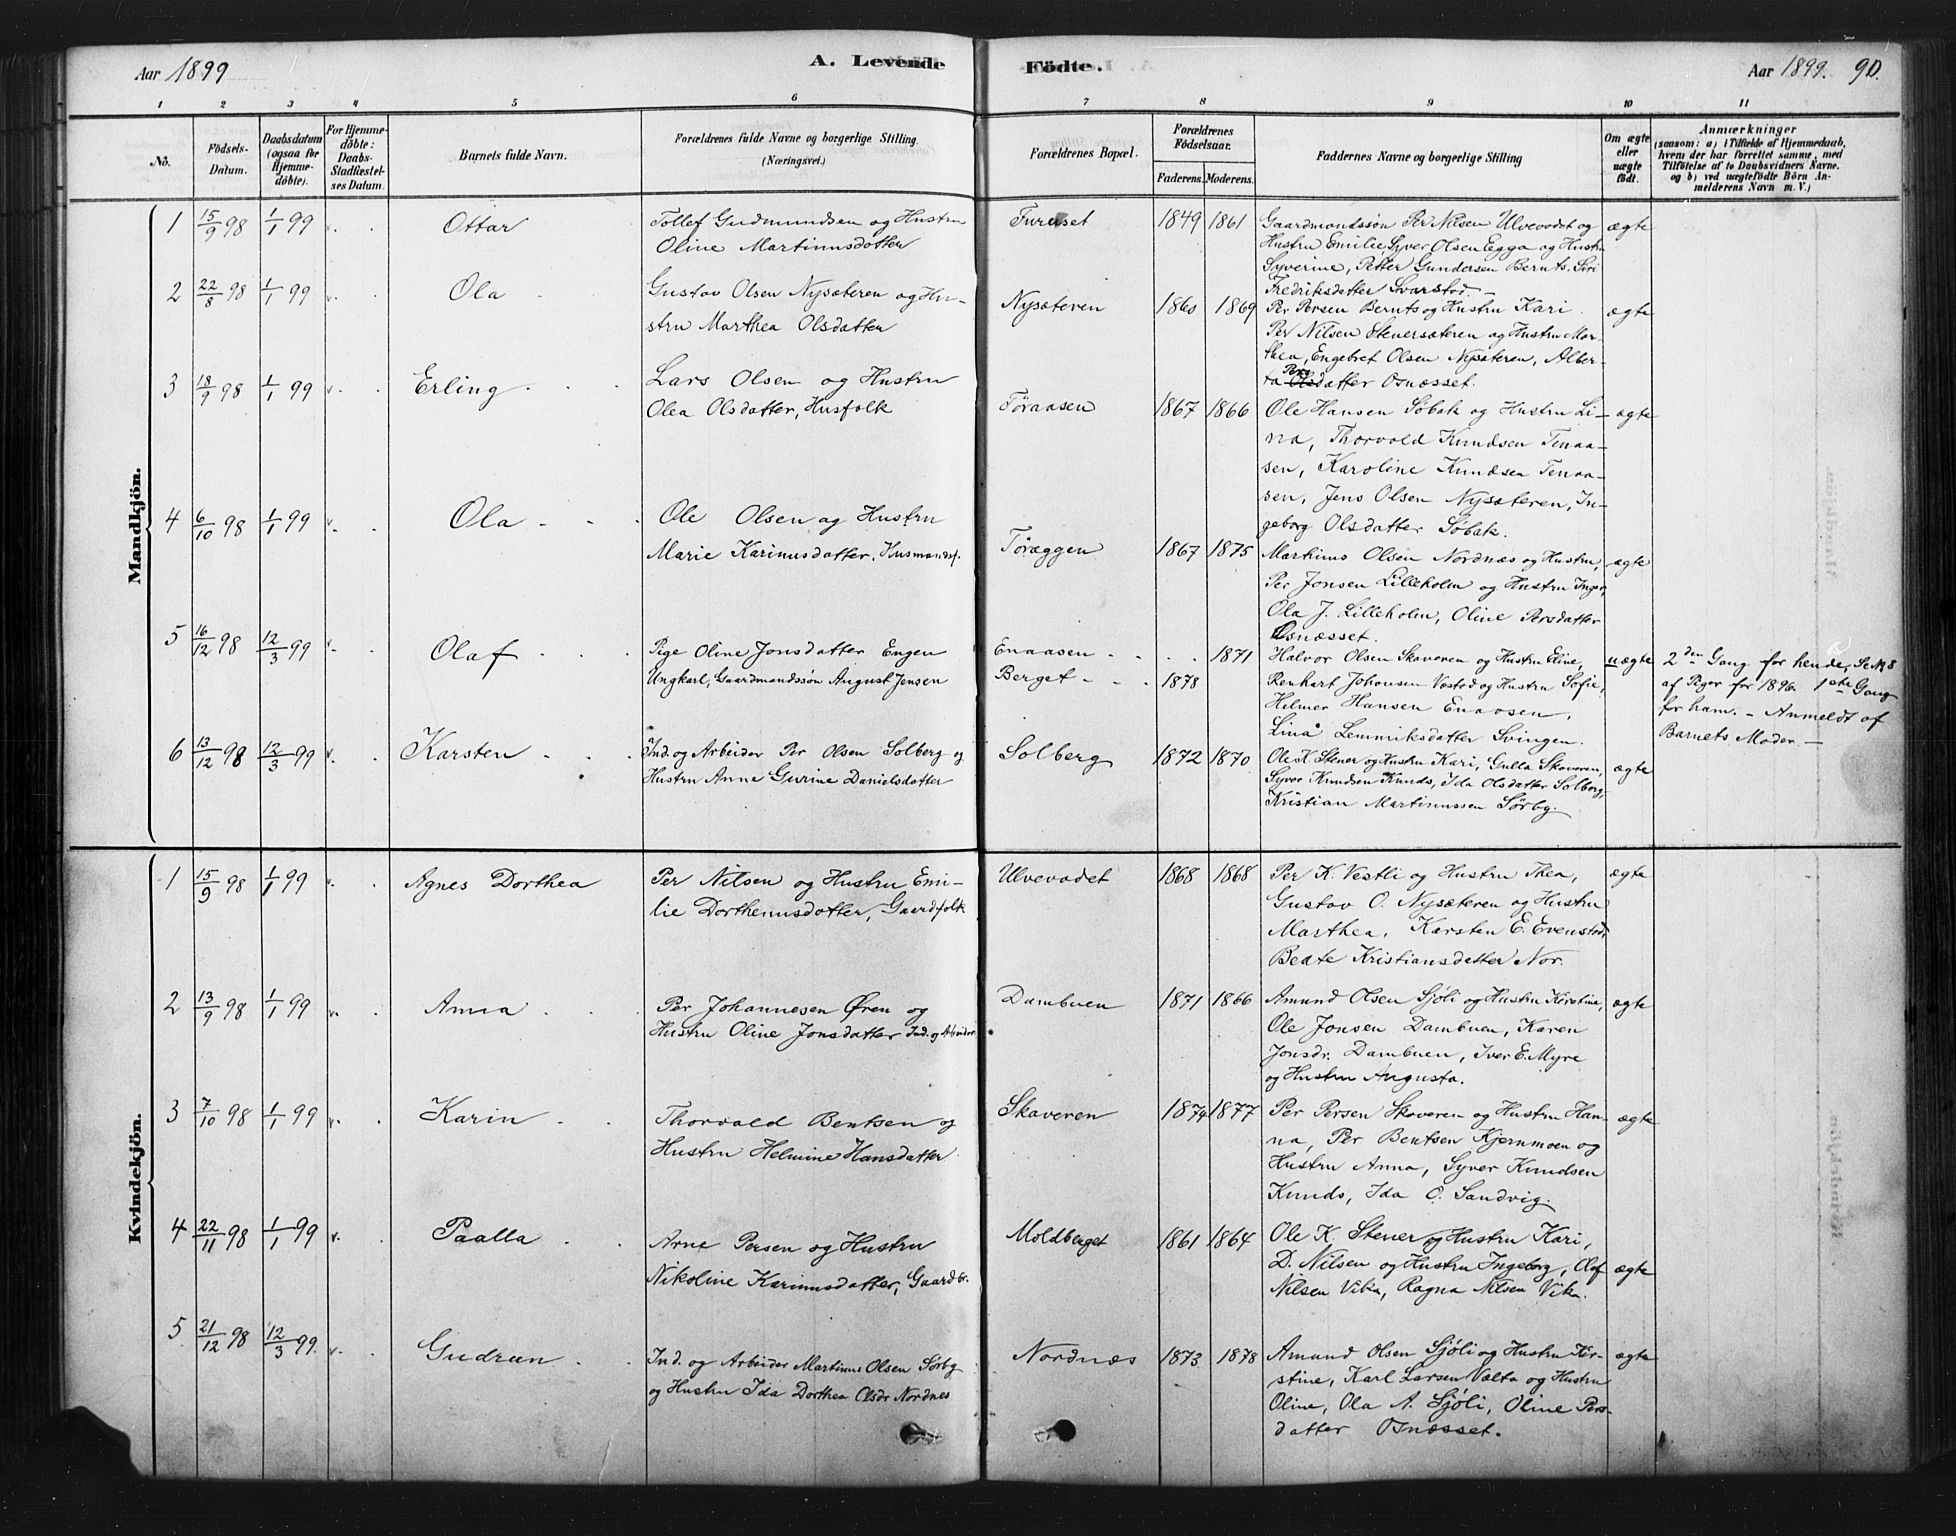 Aar 1899
A. Levende
Fødte.
Aar 1899. 90.
1 2 3 4 5 6 7 8 9 10 11
No.
Fødsels-
Datum.
Daabsdatum
(ogsaa for
Hjemme-
døbte).
For Hjemme-
døbte:
Daabs-
Stadfæstel-
ses Datum.
Barnets fulde Navn.
Forældrenes fulde Navne og borgerlige Stilling
(Næringsvei.)
Forældrenes Bopæl.
Forældrenes
Fødselsaar.
Faderens. Moderens.
Faddernes Navne og borgerlige Stilling
Om ægte
eller
uægte
født.
Anmærkninger
(saasom: a) i Tilfælde af Hjemmedaab,
hvem der har forrettet samme, med
Tilføielse af to Daabsvidners Navne.
og b) ved uægtefødte Børn An-
melderens Navn m. V.)
Mandkjön.
1 15/9 98 1/1 99 v. Ottar
Tollef Gudmundsen og Hustru
Oline Martinusdatter
Furuset 1849 1861
Gaardmandssøn Per Nilsen Ulvevadet og
Hustru Emilie, Syver Olsen Egga og Hustru
Syverine, Petter Gundersen Bernts, Siri
Fredriksdatter Svarstad.
ægte
2 22/8 98 1/1 99 v. Ola
Gustav Olsen Nysæteren og Hu-
stru Marthea Olsdatter
Nysæteren 1860 1869
Per Persen Bernts og Hustru Kari.
Per Nilsen Stenersæteren og Hustru Mar-
thea, Engebret Olsen Nysæteren, Alber-
ta Pers Olsdatter Osnæsset.
ægte
3 18/9 98 1/1 99 v. Erling
Lars Olsen og Hustru
Olea Olsdatter, Husfolk
Føraasen 1867 1866
Ole Hansen Søbak og Hustru Li-
na, Thorvald Knudsen Tenaa-
sen, Karoline Knudsen Tenaa-
sen, Jens Olsen Nysæteren, In-
geborg Olsdatter Søbak.
ægte
4 6/10 98 1/1 99 v. Ola
Ole Olsen og Hustru
Marie Karinusdatter, Husmandsf.
Føræggen 1867 1875
Martinus Olsen Nordnæs og Hustru,
Per Jonsen Lilleholm og Hustru Inger,
Ola J. Lilleholm, Oline Persdatter
Osnæsset.
ægte
5 16/12 98 12/3 99 v. Olaf
Pige Oline Jonsdatter Engen
Ungkarl, Gaardmandssøn August Jensen
Enaasen 1871
Berget 1878
Halvor Olsen Skaveren og Hustru Eline,
Renhart Johansen Vestad og Hustru Sofie,
Helmer Hansen Enaasen,
Lina Lemmiksdatter Svingen.
uægte
2den Gang for hende, Se N 8
af Piger for 1896. 1ste Gang
for ham. - Anmeldt af
Barnets Moder. -
6 13/12 98 12/3 99 v. Karsten
Ind. og Arbeider Per Olsen Solberg og
Hustru Anne Gurine Danielsdatter
Solberg 1872 1870
Ole K. Stener og Hustru Kari, Gulla Skaveren,
Syver Knudsen Kunds, Ida Olsdatter Solberg,
Kristian Martinussen Sørby.
ægte
Kvindekjön.
1 15/9 98 1/1 99 v. Agnes Dorthea
Per Nilsen og Hustru Emi-
lie Dorthenusdatter, Gaardfolk
Ulvevadet 1868 1868
Per K. Vestli og Hustru Thea,
Gustav O. Nysæteren og Hustru
Marthea, Karsten E. Evenstad,
Beate Kristiansdatter Nor.
ægte
2 13/9 98 1/1 99 v. Anna
Per Johannesen Øren og
Hustru Oline Jonsdatter Ind. og Arbeider
Dambuen 1871 1866
Amund Olsen Sjøli og Hustru Kirstine,
Ole Jonsen Dambuen, Karen
Jonsdr. Dambuen, Iver E. Myre
og Hustru Augusta.
ægte
3 7/10 98 1/1 99 v. Karin
Thorvald Bentsen og
Hustru Helmine Hansdatter
Skaveren 1874 1877
Per Persen Skaveren og Hustru Han-
na, Per Bentsen Kjernmoen og
Hustru Anna, Syver Knudsen
Kunds, Ida O. Sandvig.
ægte
4 22/11 98 1/1 99 v. Paalla
Arne Persen og Hustru
Nikoline Karinusdatter, Gaardbr.
Moldberget 1861 1864
Ole K. Stener og Hustru Kari,
D. Nilsen og Hustru Ingeborg, Olaf
Nilsen Vika, Ragna Nilsen Vika.
ægte
5 21/12 98 12/3 99. v. Gudrun
Ind. og Arbeider Martinus Olsen Sørby
og Hustru Ida Dorthea Olsdr Nordnes
Nordnæs 1873 1878
Amund Olsen Sjøli og Hustru Kir-
stine, Karl Larsen Valta og Hustru
Oline, Ola A. Sjøli, Oline Pers-
datter Osnæsset.
ægte